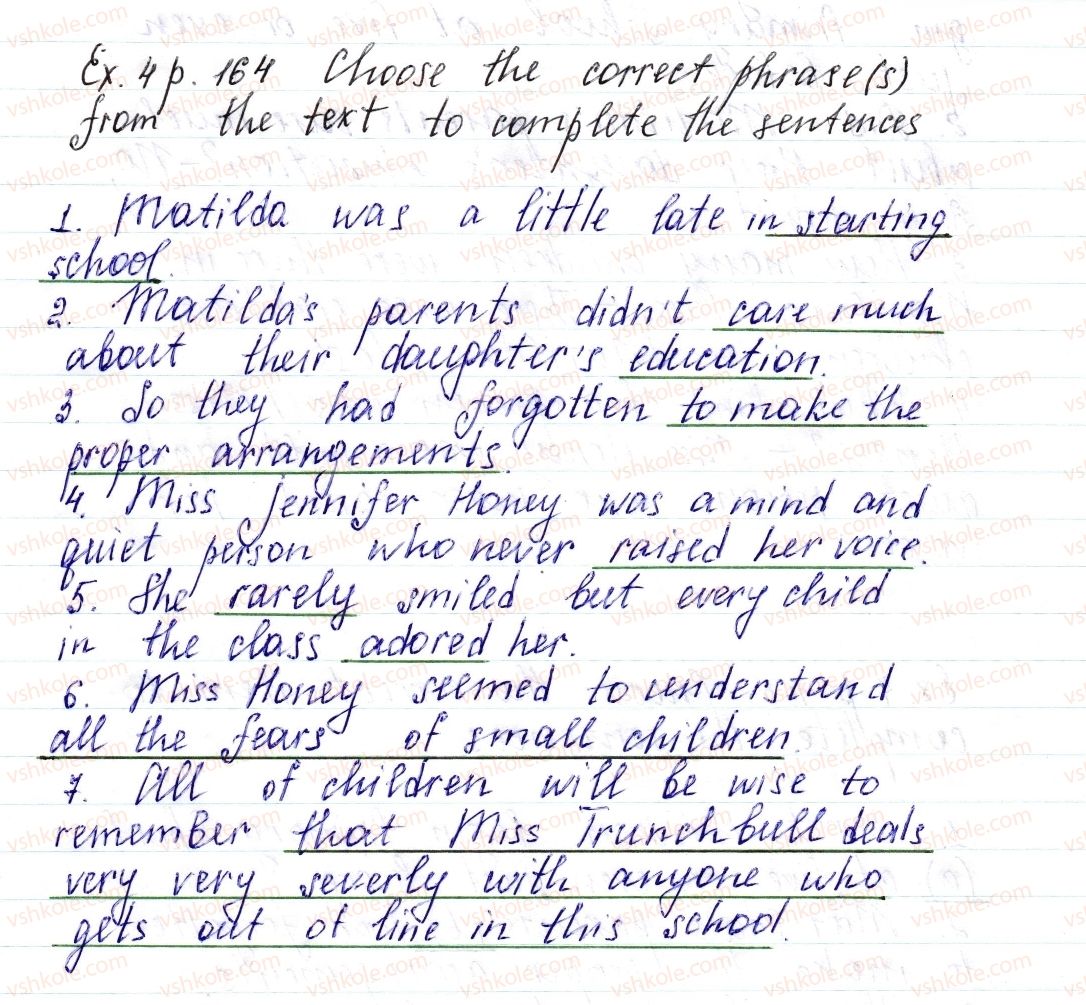 Ex. 4 p. 164 Choose the correct phrase(s)
from the text to complete the sentences
1. Matilda was a little late in starting
school.
2. Matilda's parents didn't care much
about their daughter's education.
3. So they had forgotten to make the
proper arrangements.
4. Miss Jennifer Honey was a mind and
quiet person who never raised her voice.
5. She rarely smiled but every child
in the class adored her.
6. Miss Honey seemed to understand
all the fears of small children.
7. All of children will be wise to
remember that Miss Trunchbull deals
very very severly with anyone who
gets out of line in this school.